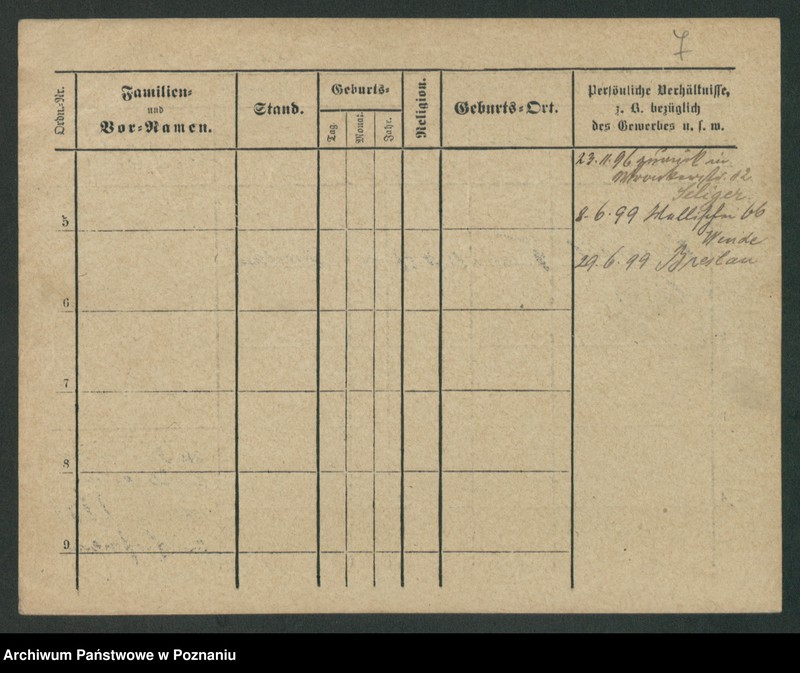 7
Ordn.-Nr.
Familien-
und
Vor-Namen.
Stand.
Geburts-
Tag.
Monat.
Jahr.
Religion.
Geburts-Ort.
Persönliche Verhältnisse,
z. B. bezüglich
des Gewerbes u. s. w.
23.11.96 zurück in
Wronkerstr. 12
Seliger
8.6.99 Halbdorf 66
Wende
29.6.99 Breslau
5
6
7
8
9
Archiwum Państwowe w Poznaniu